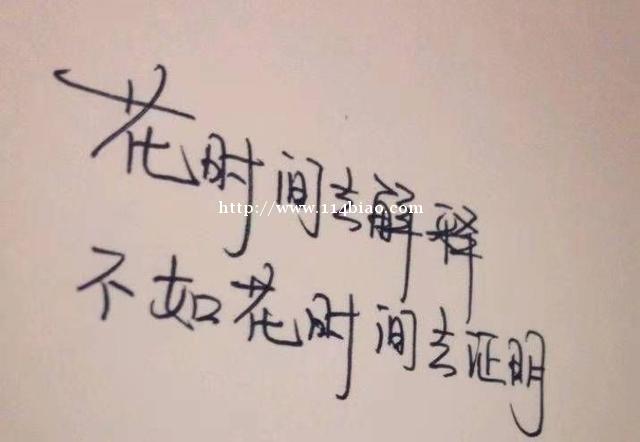 花时间去解释
http://www.114biao.com
不如花时间去证明